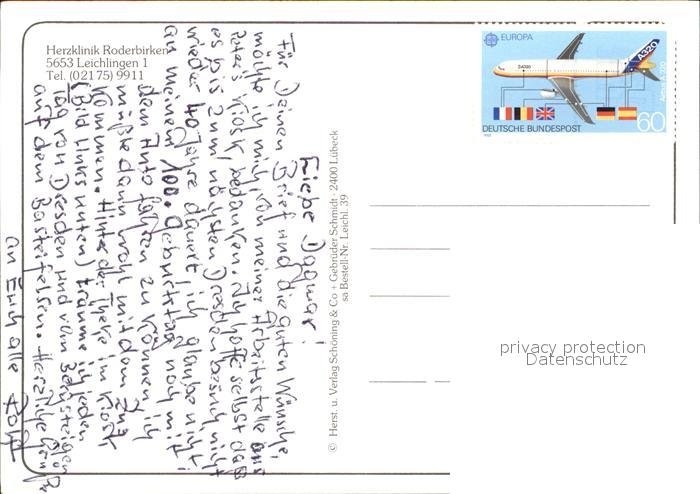 Herzklinik Roderbirken
5653 Leichlingen 1
Tel. (02175) 9911
EUROPA
A320
Airbus A 320
60
DEUTSCHE BUNDESPOST
Liebe Dagmar!
Für Deinen Brief und die guten Wünsche,
möchte ich mich, von meiner Arbeitsstelle aus
Peters Kiosk, bedanken. Ich hoffe selbst daß
es bis zum nächsten Dresdenbesuch nicht
wieder 40 Jahre dauert, ich glaube nicht
an meinem 100. Geburtstag noch mit
dem Auto fahren zu können ich
müßte dann wohl mit dem Zug
kommen. Hinter der Theke im Kiosk
(Bild links unten) träume ich jeden
Tag von Dresden und vom Bergsteigen
auf dem Basteifelsen. Herzliche Grüße
an Euch alle Rolf
© Herst. u. Verlag Schöning & Co + Gebrüder Schmidt · 2400 Lübeck
sa Bestell-Nr. Leichl. 39
privacy protection
Datenschutz